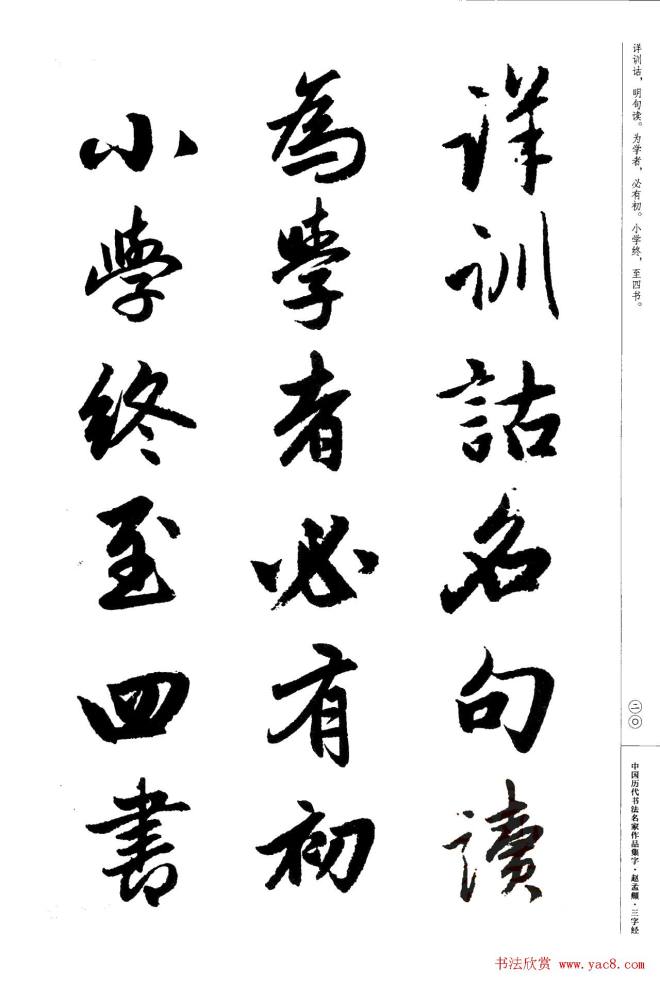 详训诂，明句读。为学者，必有初。小学终，至四书。
詳訓詁名句讀
為學者必有初
小學終至四書
二〇
中国历代书法名家作品集字·赵孟頫·三字经
书法欣赏 www.yac8.com